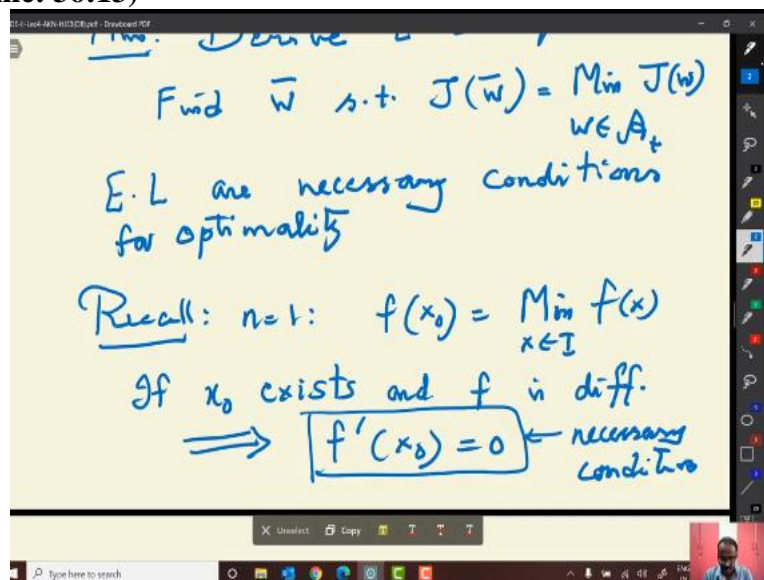 Find w̄ s.t. J(w̄) = Min J(w)
w ∈ A_t
E.L are necessary conditions
for optimality
Recall: n=1: f(x₀) = Min f(x)
x ∈ I
If x₀ exists and f is diff.
⟹ f'(x₀) = 0 ← necessary
condition
Unselect Copy T T T
Type here to search